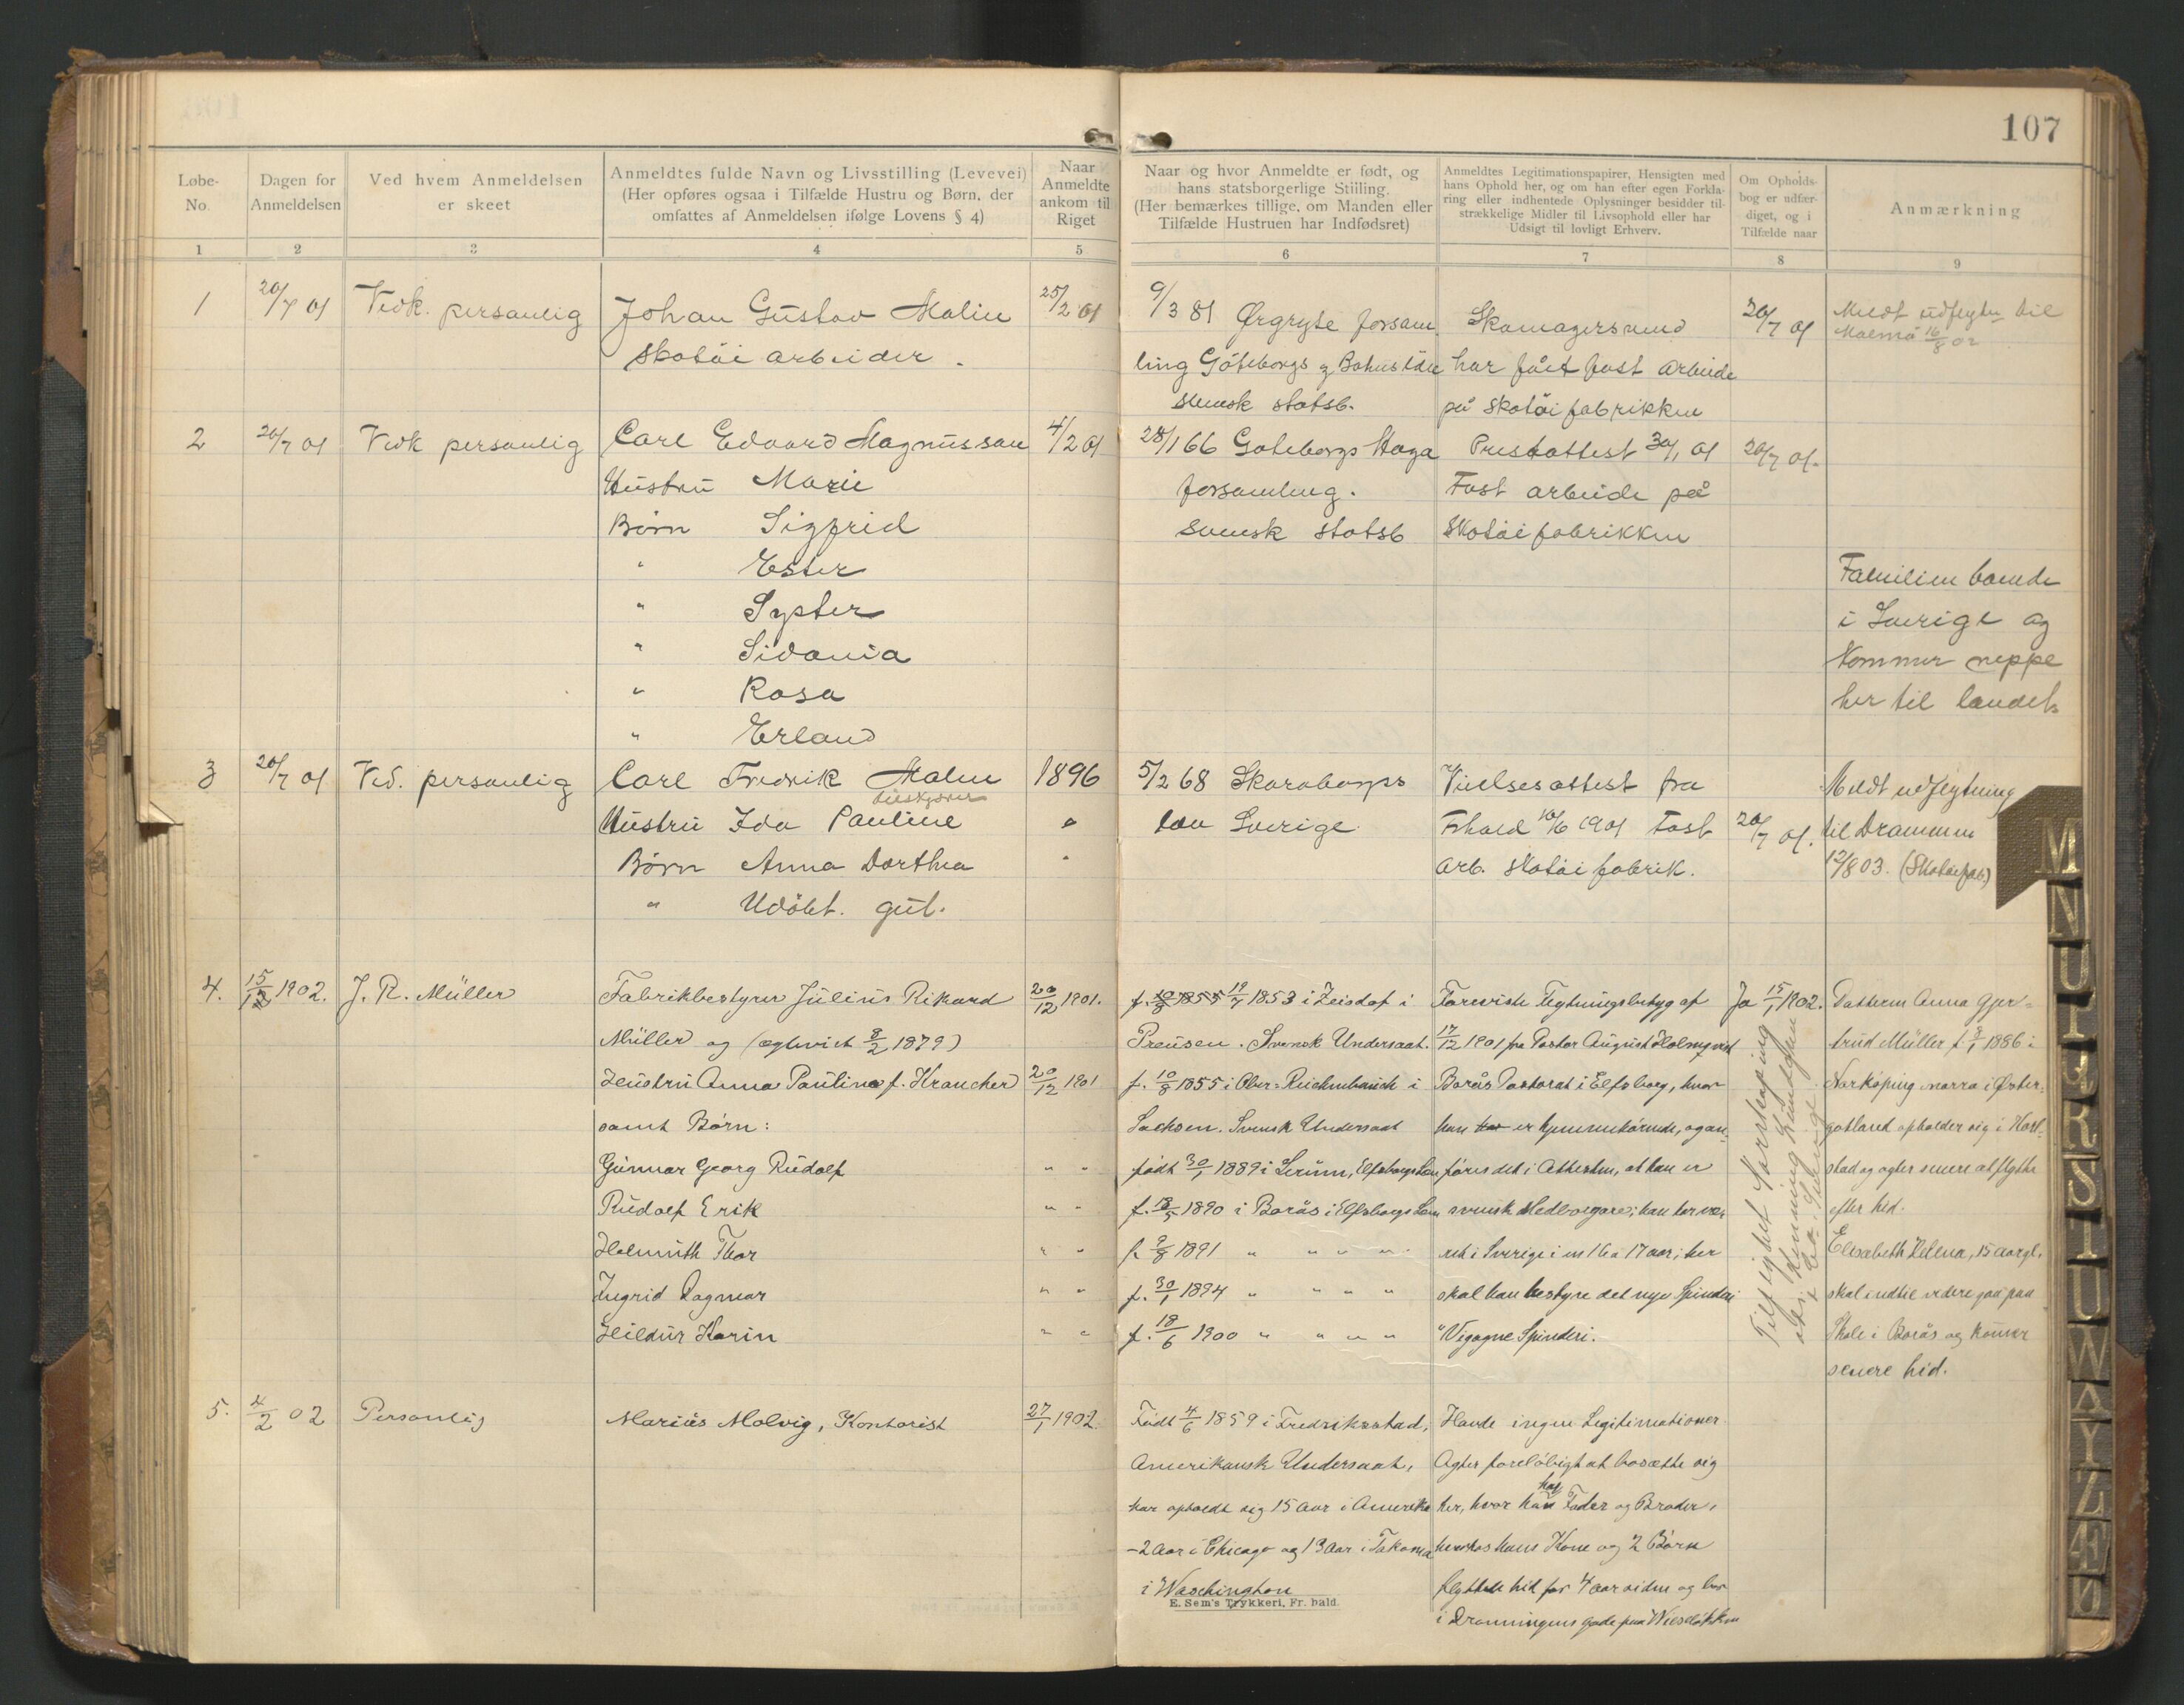 107
Løbe-
No.
Dagen for
Anmeldelsen
Ved hvem Anmeldelsen
er skeet
Anmeldtes fulde Navn og Livsstilling (Levevei)
(Her opføres ogsaa i Tilfælde Hustru og Børn, der
omfattes af Anmeldelsen ifølge Lovens § 4)
Naar
Anmeldte
ankom til
Riget
Naar og hvor Anmeldte er født, og
hans statsborgerlige Stiiling.
(Her bemærkes tillige, om Manden eller
Tilfælde Hustruen har Indfødsret)
Anmeldtes Legitimationspapirer, Hensigten med
hans Ophold her, og om han efter egen Forkla-
ring eller indhentede Oplysninger besidder til-
strækkelige Midler til Livsophold eller har
Udsigt til lovligt Erhverv.
Om Opholds-
bog er udfær-
diget, og i
Tilfælde naar
Anmærkning
1 2 3 4 5 6 7 8 9
1 20/7 01 Vedk. personlig Johan Gustav Malin 25/2 01 9/3 81 Ørgryte forsam. Skomagersvend 20/7 01 Meldt udflyttn til
Malmö 16/8 02
skotöiarbeider. ling Göteborgs og Bohus län har fået fast arbeide
svensk statsb. på skotöifabrikken
2 20/7 01 Vedk personlig Carl Edvard Magnusson 4/2 01 28/1 66 Göteborgs Haga Prestattest 30/1 01 20/7 01.
Hustru Marie forsamling. Fast arbeide på
Børn Sigfrid svensk statsb skotöifabrikken
" Ester Familien boende
" Syster i Sverige og
" Sidonia kommer neppe
" Rosa her til landet.
" Erland
3 20/7 01 Ved. personlig Carl Fredrik Malm 1896 5/2 68 Skaraborgs Vielsesattest fra Meldt udflytning
Hustru Ida Pauline " län Sverige 10/6 1901 Fast 20/7 01. til Drammen
Børn Anna Dorthea " arb. skotöifabrik. 12/8 03. (Skotöifab.)
" Udöbt. gut.
4. 15/12 1902. J. R. Müller Fabrikbestyrer Julius Rikard 20/12 1901. f. 10/8 1855 19/7 1853 i Zeisdof i Foreviste Flytningsbetyg af Ja 15/1 1902. Datteren Anna Gjer-
Müller og (ægteviet 8/2 1879) Preusen. Svensk Undersaat. 17/12 1901 fra Pastor August Holmqvist trud Müller f. 13/1 1886 i
Hustru Anna Paulina f. Krancher 20/12 1901 f. 10/8 1855 i Ober-Reichenbach i Borås Pastorat i Elfsborg, hvor Norköping norra i Øster-
samt Börn: Sachsen. Svensk Undersaat han har er hjemmehörende, og an- gotland opholder sig i Karl-
Gunnar Georg Rudolf " " født 30/1 1889 i Lerum, Elfsborgs Len föres det i Attesten, at han er stad og agter senere at flytte
Rudolf Erik " " f. 13/5 1890 i Borås i Elfsborgs Len svensk Medborgare; han har væ- efter hid.
Helmuth Thor " " f. 9/8 1891 " " " " ret i Sverige i en 16 a 17 aar; her Elisabeth Helena, 15 aar gl.
Ingrid Dagmar " " f. 30/1 1894 " " " " skal han bestyre det nye Spinderi skal indtil videre gaa paa
Hildur Karin " " f. 18/6 1900 " " " " "Vigogne Spinderi. Skole i Borås og kommer
senere hid.
5. 4/2 02 Personlig Marius Molvig, Kontorist 27/1 1902. Født 4/6 1859 i Fredriksstad, Havde ingen Legitimationer.
Amerikansk Undersaat, Agter foreløbigt at bosætte sig
har opholdt sig 15 Aar i Amerika her, hvor han har Fader og Broder,
- 2 Aar i Chicago og 13 Aar i Takoma hvorhos hans Kone og 2 Børn
i Waschington flyttede hid for 4 aar siden og bor
E. Sem's Trykkeri, Fr. hald.
i Dronningens gade paa
M
N
U
P
R
S
I
U
W
A
Y
Z
Æ
Ø